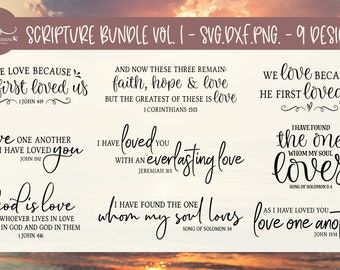 SCRIPTURE BUNDLE VOL. 1 - SVG.DXF.PNG. - 9 DESI
E LOVE BECAUSE
first loved us
1 JOHN 4:19
AND NOW THESE THREE REMAIN:
faith, hope & love
BUT THE GREATEST OF THESE IS love
1 CORINTHIANS 13:13
WE love BECAU
HE FIRST loved
ve ONE ANOTHER
I HAVE LOVED you
JOHN 15:12
I HAVE loved YOU
WITH AN everlasting love
JEREMIAH 31:3
I HAVE FOUND
the one
WHOM MY SOUL
loves
SONG OF SOLOMON 3:4
od is love
WHOEVER LIVES IN LOVE
IN GOD AND GOD IN THEM
1 JOHN 4:16
I HAVE FOUND THE ONE
whom my soul loves
SONG OF SOLOMON 3:4
AS I HAVE LOVED YOU
love one anot
JOHN 13:34